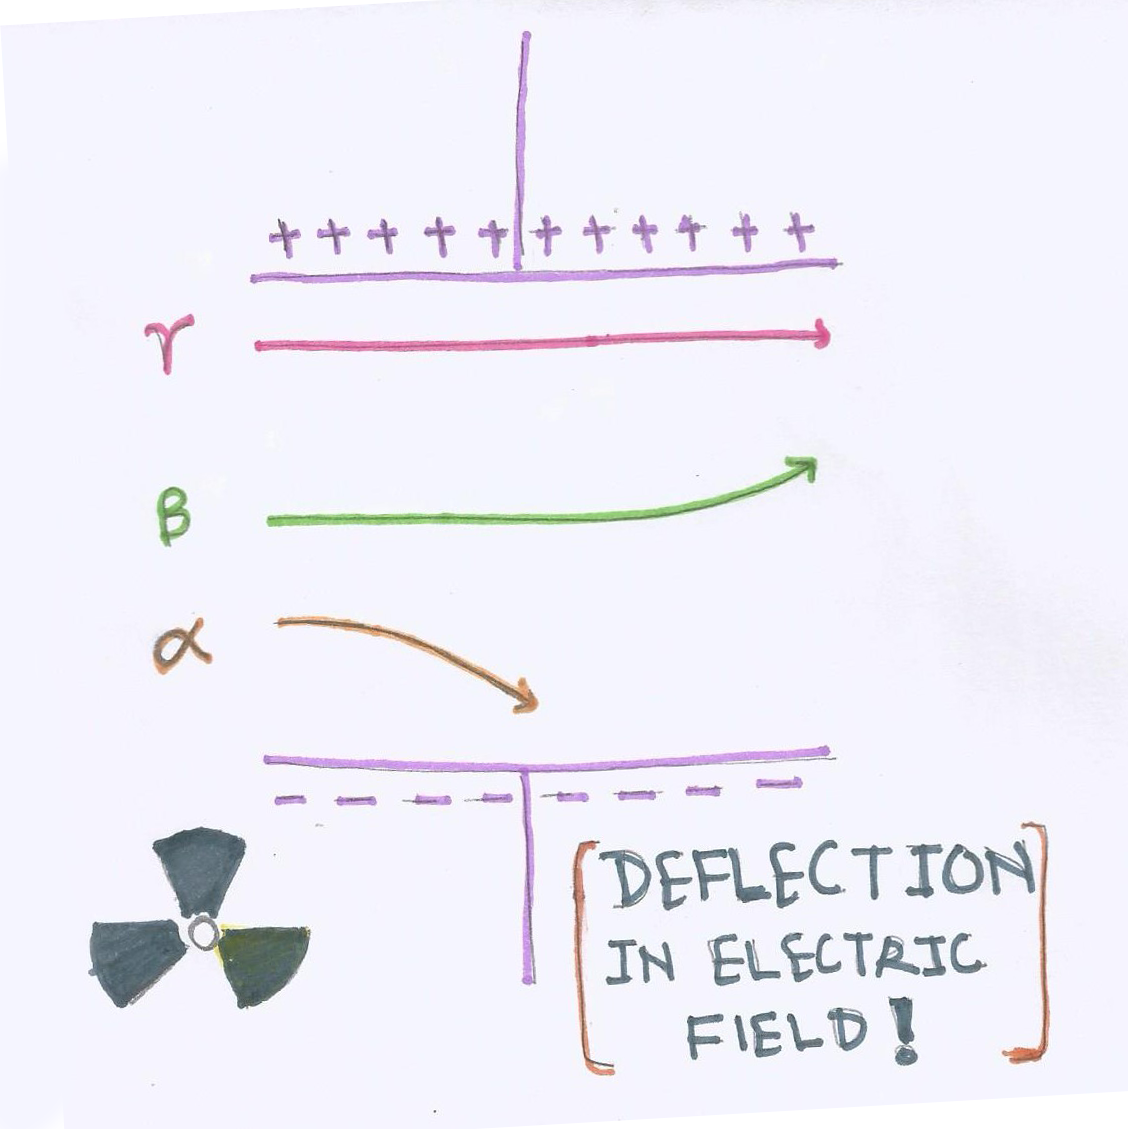 + + + + + + + + + + +
γ
β
α
− − − − − − − −
DEFLECTION
IN ELECTRIC
FIELD!